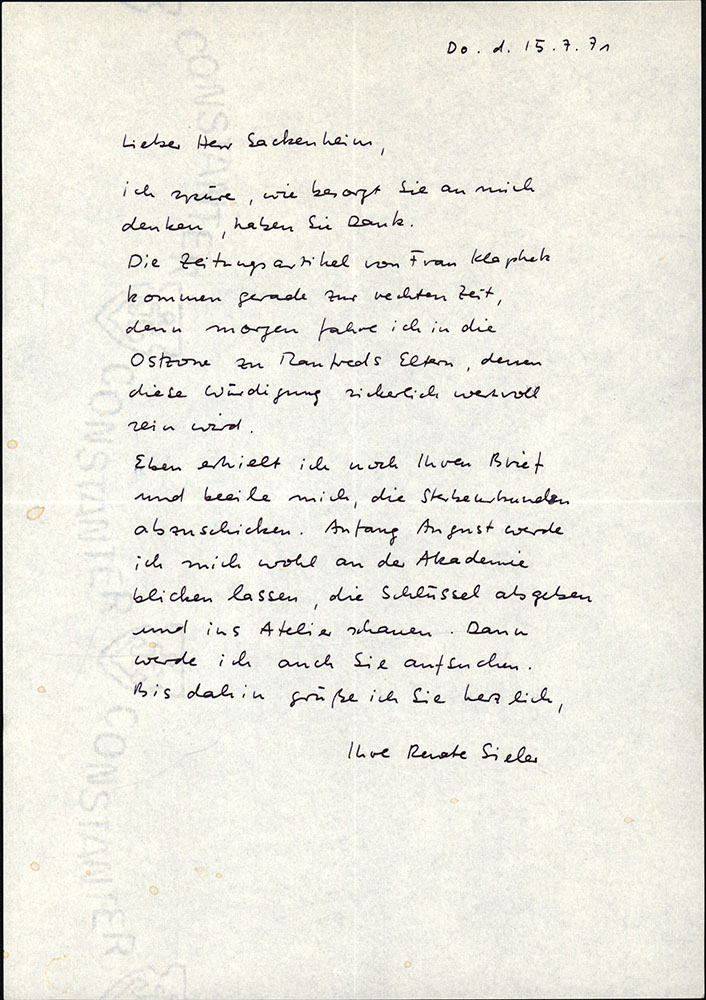 Do. d. 15.7.71
Lieber Herr Sackenheim,
ich spüre, wie besorgt Sie an mich
denken, haben Sie Dank.
Die Zeitungsartikel von Frau Klapheck
kommen gerade zur rechten Zeit,
denn morgen fahre ich in die
Ostzone zu Manfreds Eltern, denen
diese Würdigung sicherlich wertvoll
sein wird.
Eben erhielt ich noch Ihren Brief
und beeile mich, die Sterbeurkunden
abzuschicken. Anfang August werde
ich mich wohl an der Akademie
blicken lassen, die Schlüssel abgeben
und ins Atelier schauen. Dann
werde ich auch Sie aufsuchen.
Bis dahin grüße ich Sie herzlich,
Ihre Renate Sieler
CONSTANTER
CONSTANTER
CONSTANTER